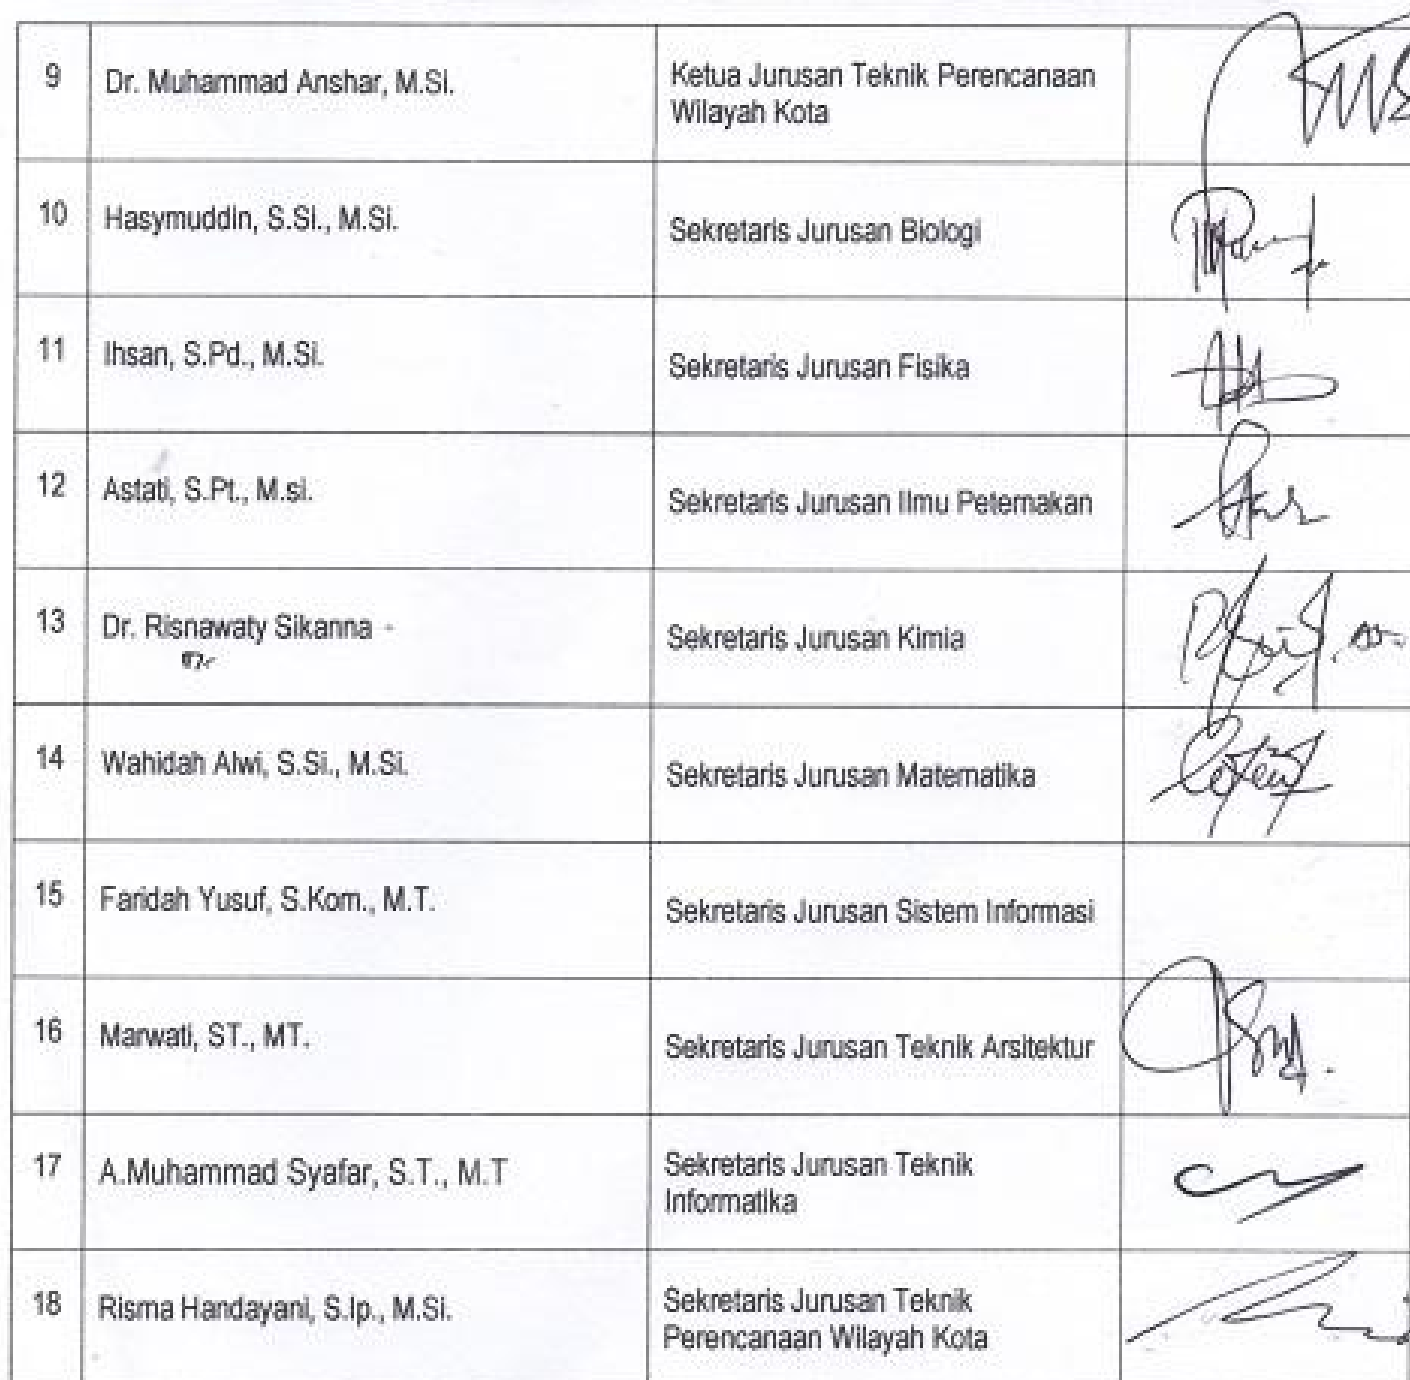 9 Dr. Muhammad Anshar, M.Si. Ketua Jurusan Teknik Perencanaan
Wilayah Kota
10 Hasymuddin, S.Si., M.Si. Sekretaris Jurusan Biologi
11 Ihsan, S.Pd., M.Si. Sekretaris Jurusan Fisika
12 Astati, S.Pt., M.si. Sekretaris Jurusan Ilmu Peternakan
13 Dr. Risnawaty Sikanna - Sekretaris Jurusan Kimia
14 Wahidah Alwi, S.Si., M.Si. Sekretaris Jurusan Matematika
15 Faridah Yusuf, S.Kom., M.T. Sekretaris Jurusan Sistem Informasi
16 Marwati, ST., MT. Sekretaris Jurusan Teknik Arsitektur
17 A.Muhammad Syafar, S.T., M.T Sekretaris Jurusan Teknik
Informatika
18 Risma Handayani, S.Ip., M.Si. Sekretaris Jurusan Teknik
Perencanaan Wilayah Kota